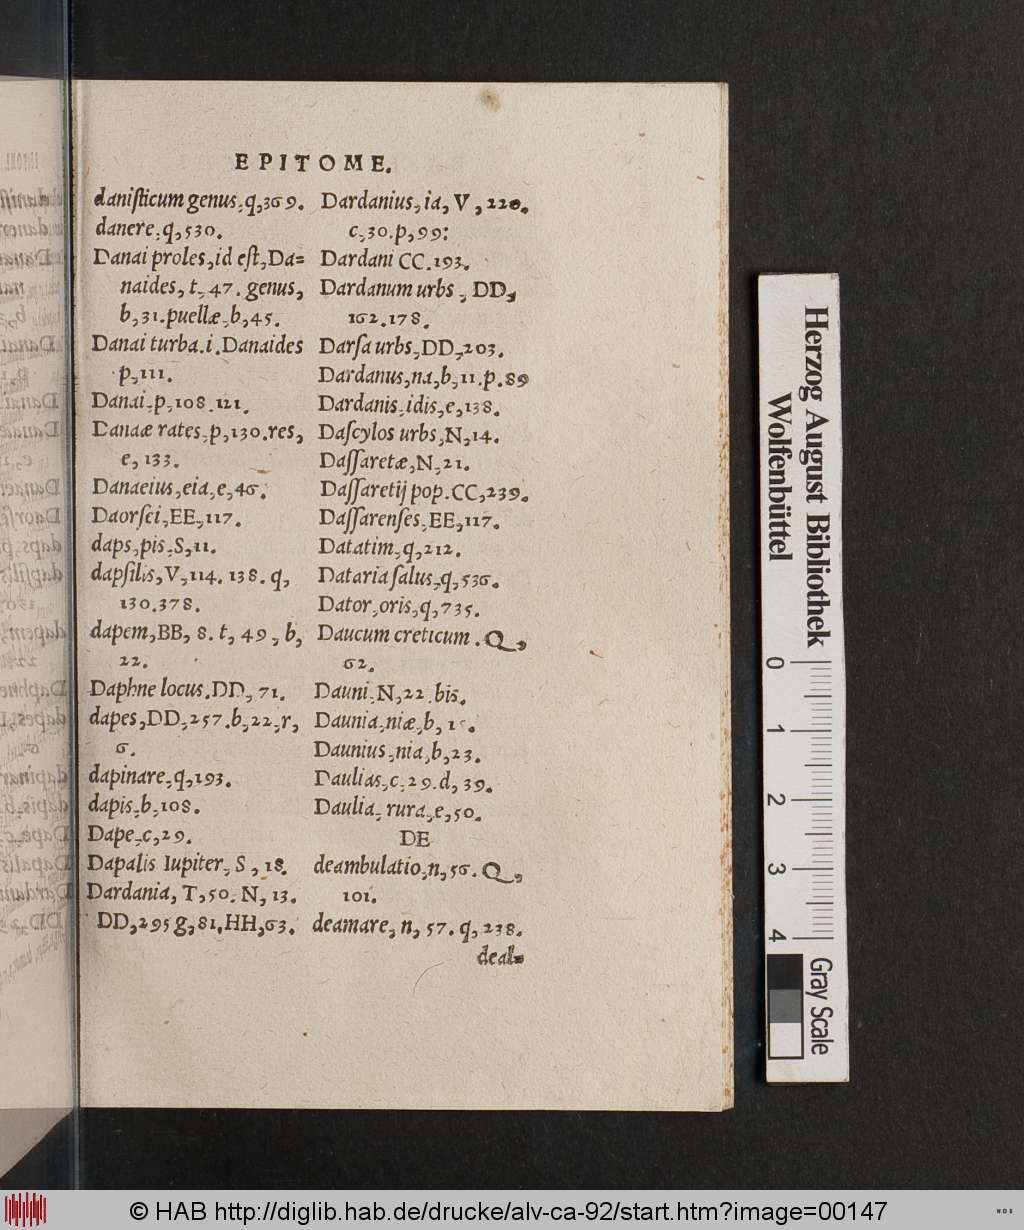 EPITOME.
daniſticum genus,q,369.
danere,q,530.
Danai proles,id eſt,Da=
naides, t, 47. genus,
b,31.puellæ,b,45.
Danai turba.i.Danaides
p,111.
Danai,p,108.121.
Danaæ rates,p,130.res,
e, 133.
Danaeius,eia,e,46.
Daorſei,EE,117.
daps,pis,S,11.
dapſilis,V,114. 138. q,
130.378.
dapem,BB, 8. t, 49, b,
22.
Daphne locus.DD, 71.
dapes,DD,257.b,22,r,
6.
dapinare,q,193.
dapis,b,108.
Dape,c,29.
Dapalis Iupiter, S, 18.
Dardania, T,50. N, 13.
DD,295 g,81.HH,63.
Dardanius,ia, V, 220.
c,30.p,99:
Dardani CC.193.
Dardanum urbs, DD,
162.178.
Darſa urbs,DD,203.
Dardanus,na,b,11.p.89
Dardanis,idis,e,138.
Daſcylos urbs,N,14.
Daſſaretæ,N,21.
Daſſaretij pop.CC,239.
Daſſarenſes,EE,117.
Datatim,q,212.
Dataria ſalus,q,536.
Dator,oris,q,735.
Daucum creticum. Q,
62.
Dauni,N,22.bis.
Daunia,niæ,b,
Daunius,nia,b,23.
Daulias,c,29.d, 39.
Daulia, rura,e,50.
DE
deambulatio,n,56. Q,
101.
deamare, n, 57. q, 238.
deal=
Herzog August Bibliothek
Wolfenbüttel
0 1 2 3 4
Gray Scale
© HAB http://diglib.hab.de/drucke/alv-ca-92/start.htm?image=00147